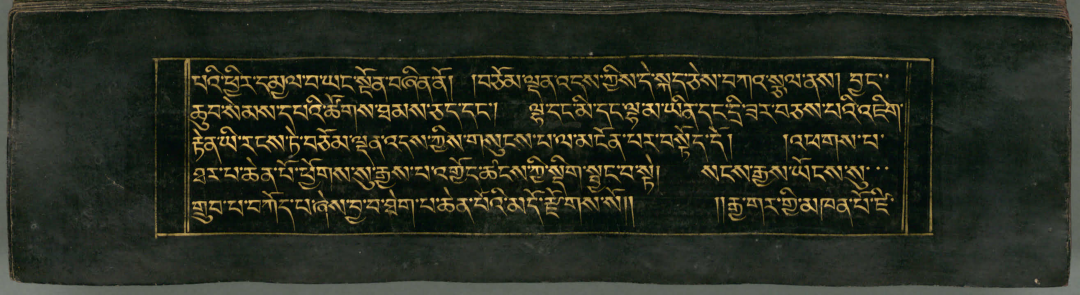 པའི་ཕྱིར་དམྱལ་བ་ཡང་སྟོན་བཞིན་ནོ། །བཅོམ་ལྡན་འདས་ཀྱིས་དེ་སྐད་ཅེས་བཀའ་སྩལ་ནས། བྱང་
ཆུབ་སེམས་དཔའི་ཚོགས་ཐམས་ཅད་དང་། ལྷ་དང་མི་དང་ལྷ་མ་ཡིན་དང་དྲི་ཟར་བཅས་པའི་འཇིག་
རྟེན་ཡི་རངས་ཏེ་བཅོམ་ལྡན་འདས་ཀྱིས་གསུངས་པ་ལ་མངོན་པར་བསྟོད་དོ། །འཕགས་པ་
ཐར་པ་ཆེན་པོ་ཕྱོགས་སུ་རྒྱས་པ་འགྱོད་ཚངས་ཀྱི་སྡིག་སྦྱང་བ་སྟེ། སངས་རྒྱས་ཡོངས་སུ་
གྲུབ་པ་བཀོད་པ་ཞེས་བྱ་བ་ཐེག་པ་ཆེན་པོའི་མདོ་རྫོགས་སོ།། །།རྒྱ་གར་གྱི་མཁན་པོ་ཛི་